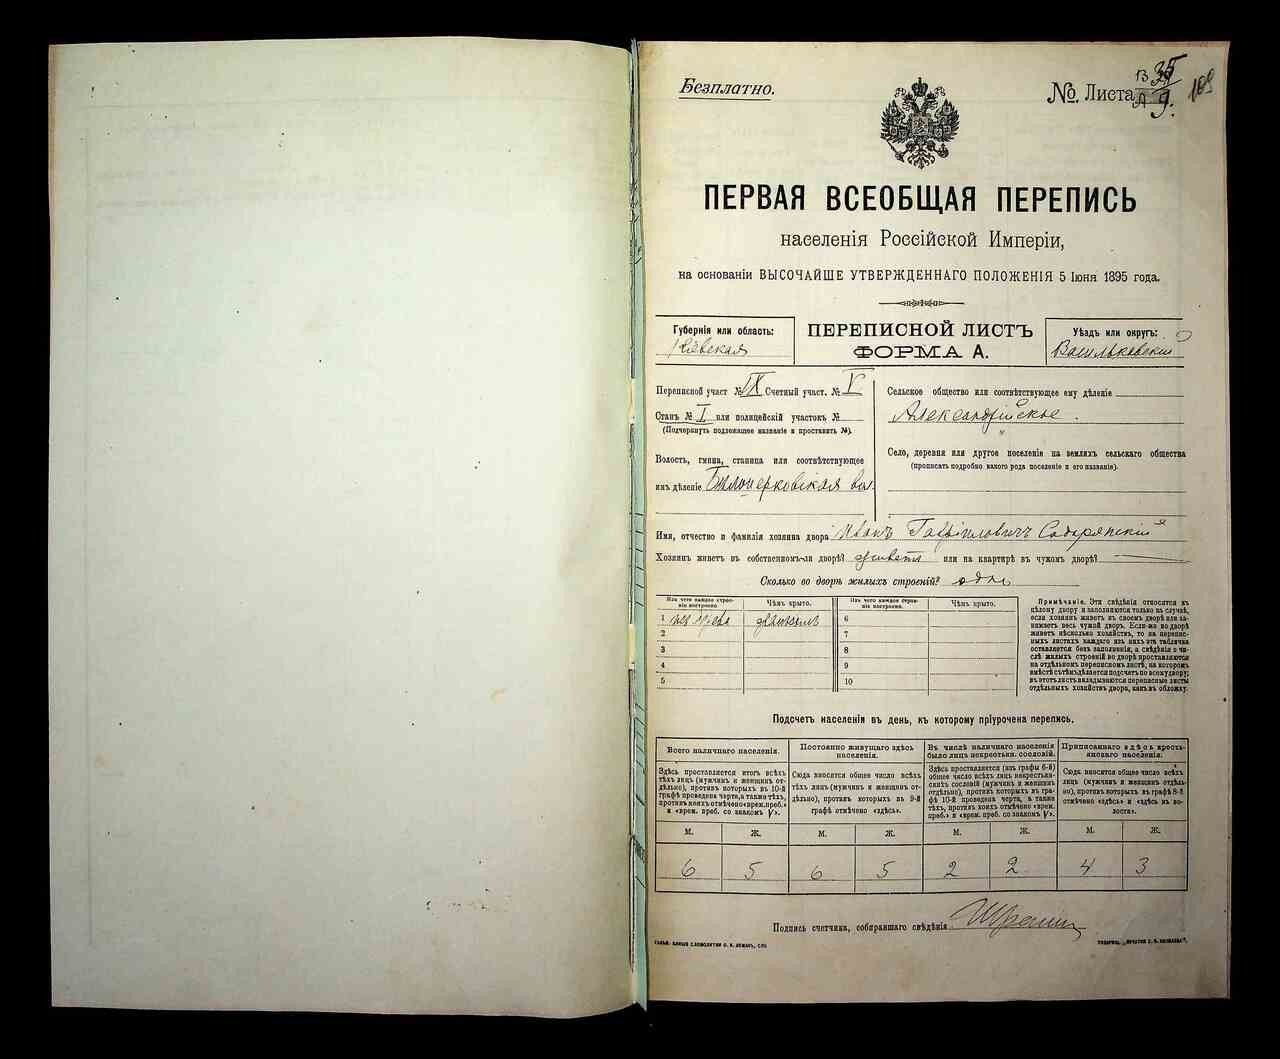 Безплатно.
№. Листа В 35
А 9.
109
ПЕРВАЯ ВСЕОБЩАЯ ПЕРЕПИСЬ
населенія Россійской Имперіи,
на основаніи ВЫСОЧАЙШЕ УТВЕРЖДЕННАГО ПОЛОЖЕНІЯ 5 Іюня 1895 года.
Губернія или область:
Кіевская
ПЕРЕПИСНОЙ ЛИСТЪ
ФОРМА А.
Уѣздъ или округъ:
Васильковскій
Переписной участ №IX Счетный участ. № V
Станъ № I или полицейскій участокъ №
(Подчеркнуть подлежащее названіе и проставить №).
Волость, гмина, станица или соотвѣтствующее
имъ дѣленіе Бѣлоцерковская вол.
Сельское общество или соотвѣтствующее ему дѣленіе
Александрійское.
Село, деревня или другое поселеніе на земляхъ сельскаго общества
(прописать подробно какого рода поселеніе и его названіе).
Имя, отчество и фамилія хозяина двора Иванъ Гавріиловичъ
Хозяинъ живетъ въ собственномъ-ли дворѣ? живетъ или на квартирѣ въ чужомъ дворѣ?
Сколько во дворѣ жилыхъ строеній? одно
Изъ чего каждое строеніе построено.
Чѣмъ крыто.
Изъ чего каждое строеніе построено.
Чѣмъ крыто.
1 изъ
6
2
7
3
8
4
9
5
10
Примѣчаніе. Эти свѣдѣнія относятся къ
цѣлому двору и заполняются только въ случаѣ,
если хозяинъ живетъ въ своемъ дворѣ или занимаетъ
весь чужой дворъ. Если-же во дворѣ
живетъ нѣсколько хозяйствъ, то на переписныхъ
листахъ каждаго изъ нихъ эта табличка
оставляется безъ заполненія, а свѣдѣнія о числѣ
жилыхъ строеній во дворѣ проставляются
на отдѣльномъ переписномъ листѣ, на которомъ
вмѣстѣ съ тѣмъ дѣлается подсчетъ по всему двору;
въ этотъ листъ вкладываются переписные листы
отдѣльныхъ хозяйствъ двора, какъ въ обложку.
Подсчетъ населенія въ день, къ которому пріурочена перепись.
Всего наличнаго населенія.
Здѣсь проставляется итогъ всѣхъ
тѣхъ лицъ (мужчинъ и женщинъ отдѣльно),
противъ которыхъ въ 10-й
графѣ проведена черта, а также тѣхъ,
противъ коихъ отмѣчено «врем. преб.»
и «врем. преб. со знакомъ V».
Постоянно живущаго здѣсь
населенія.
Сюда вносится общее число всѣхъ
тѣхъ лицъ (мужчинъ и женщинъ отдѣльно),
противъ которыхъ въ 9-й
графѣ отмѣчено «здѣсь».
Въ числѣ наличнаго населенія
было лицъ некрестьян. сословій.
Здѣсь проставляется (изъ графы 6-й)
общее число всѣхъ лицъ некрестьянскихъ
сословій (мужчинъ и женщинъ
отдѣльно), противъ которыхъ въ графѣ
10-й проведена черта, а также
тѣхъ, противъ коихъ отмѣчено «врем.
преб.» и «врем. преб. со знакомъ V».
Приписаннаго здѣсь крестьянскаго
населенія.
Сюда вносится общее число всѣхъ
лицъ (мужчинъ и женщинъ отдѣльно),
противъ которыхъ въ графѣ 8-й
отмѣчено «здѣсь» и «здѣсь въ волости».
М. Ж. М. Ж. М. Ж. М. Ж.
6 5 6 5 2 2 4 3
Подпись счетчика, собиравшаго свѣдѣнія